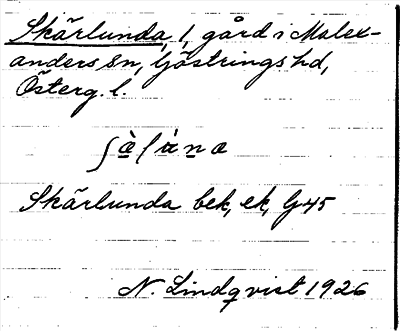 Skärlunda, 1, gård i Malex-
anders sn, Göstrings hd,
Österg. l.
Skärlunda bek, ek, G45
N. Lindqvist 1926